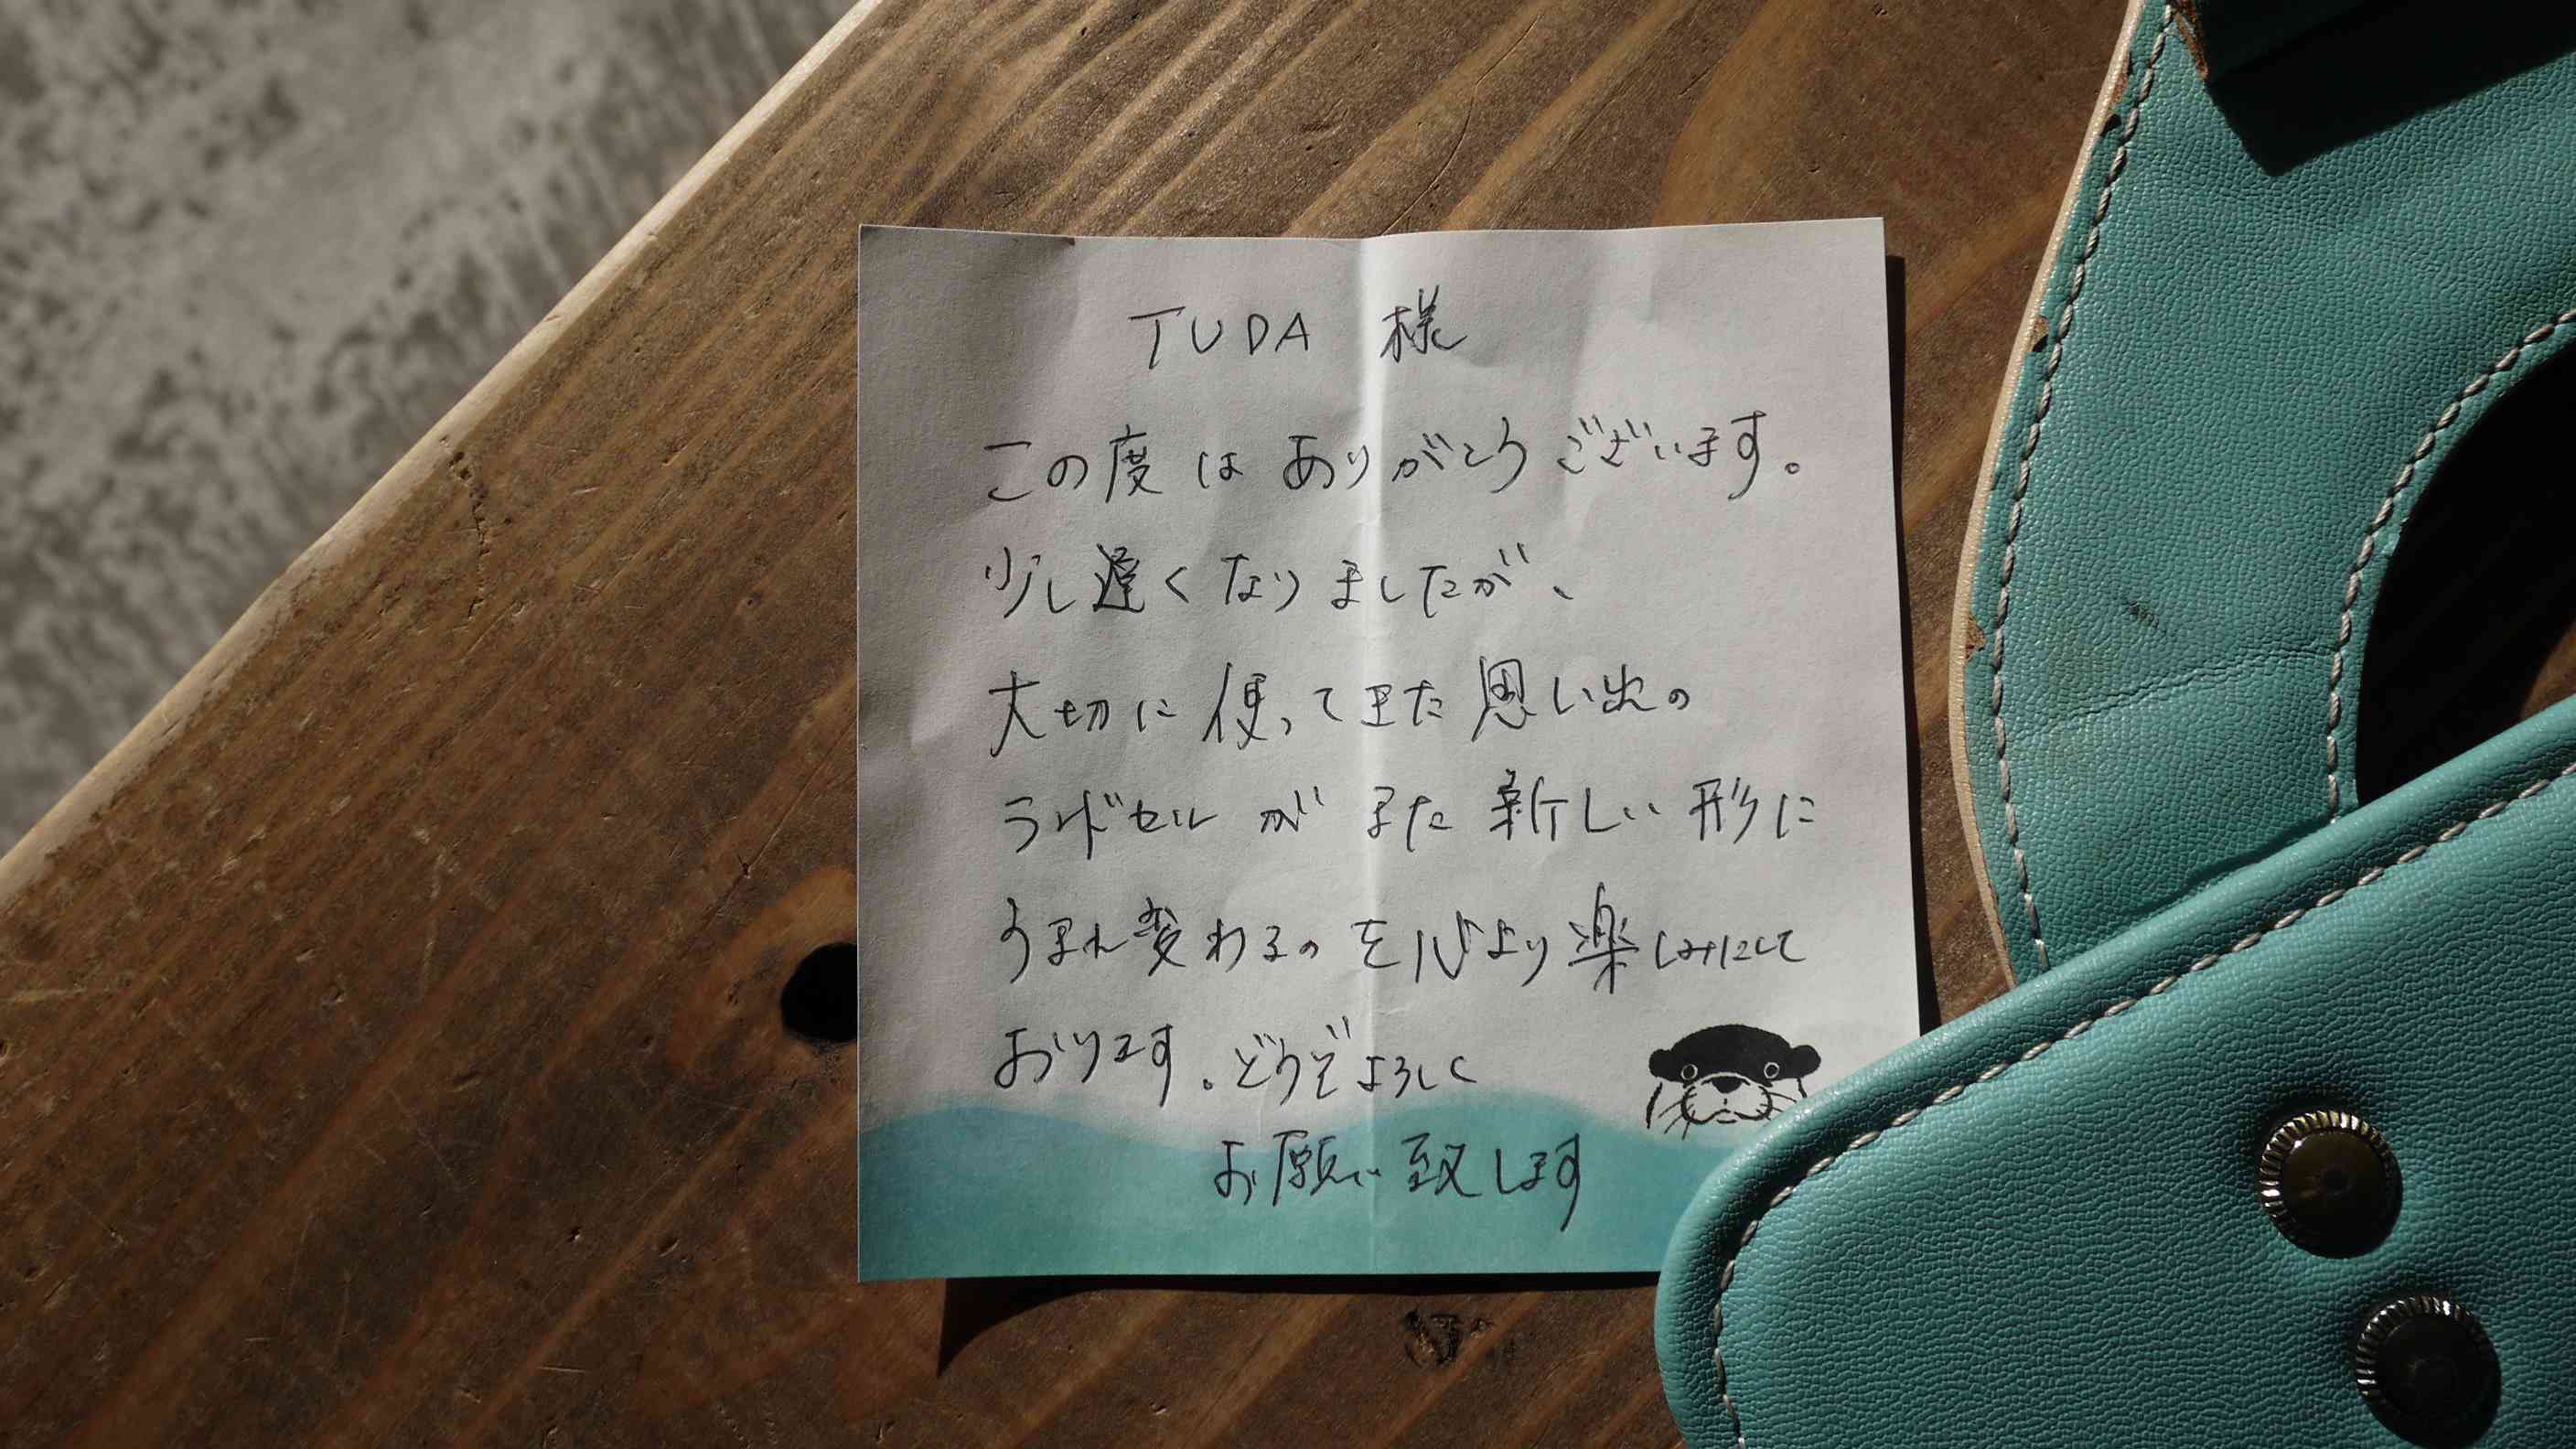 TUDA 様
この度は ありがとうございます。
少し遅くなりましたが、
大切に使ってきた思い出の
ランドセルが また 新しい形に
うまれ変わるのを心より楽しみにして
おります。どうぞよろしく
お願い致します